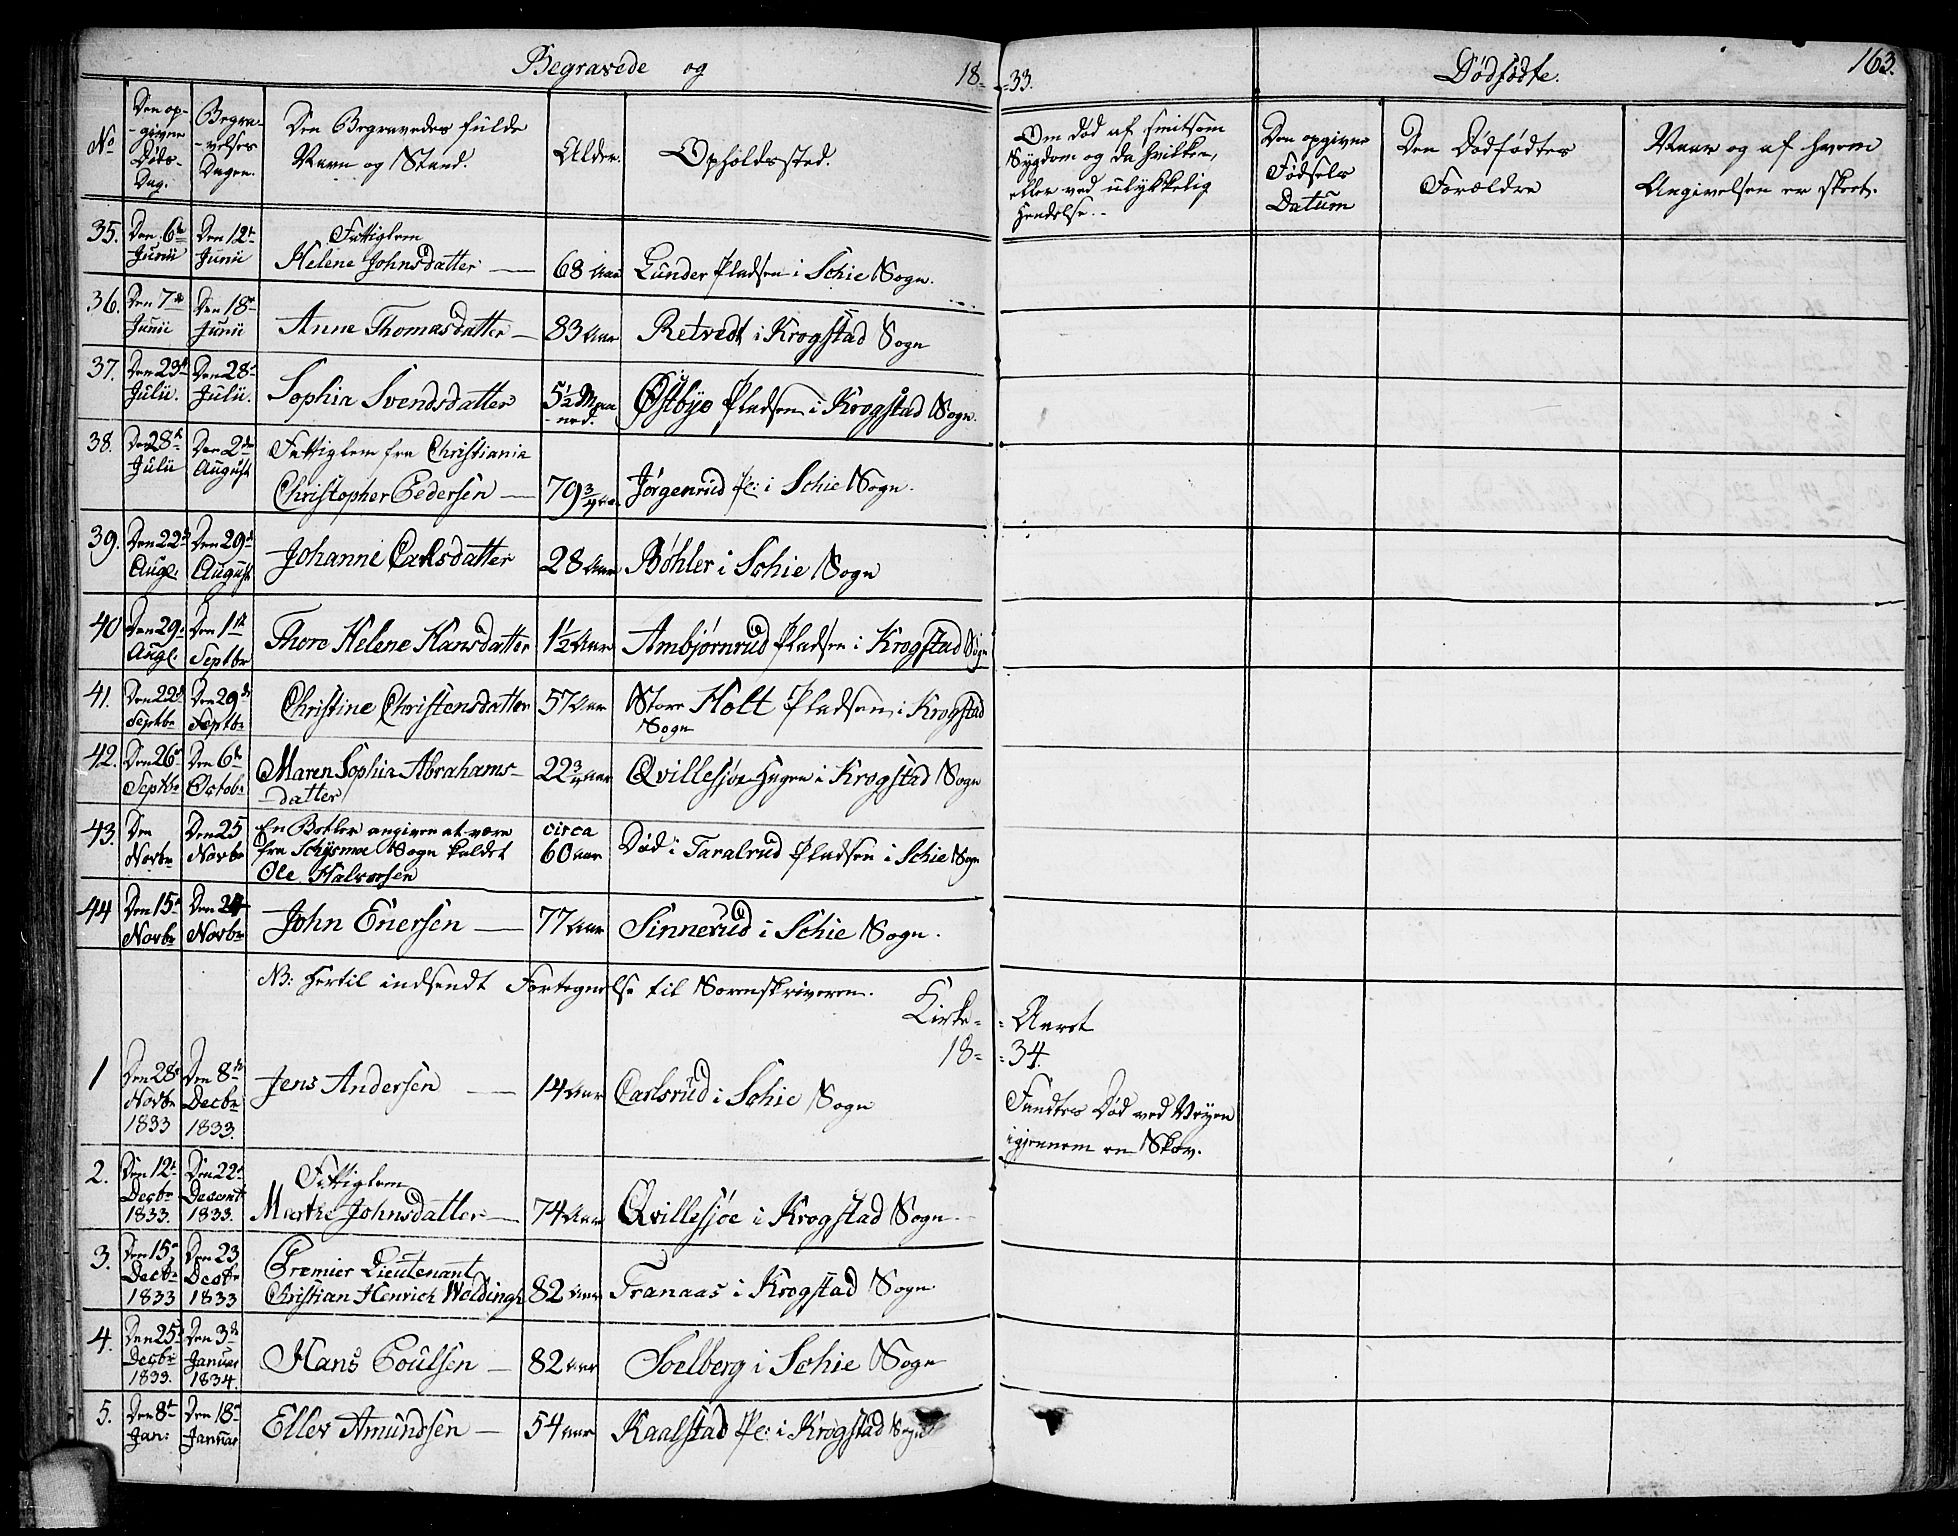 Begravede og 18-
-33. Dødfødte. 163.
No
Den op-
-givne
Døds-
Dag.
Begra-
-velses
Dagen.
Den Begravedes fulde
Navn og Stand.
Alder.
Opholdssted.
Om død af smitsom
Sygdom og da hvilken,
eller ved ulykkelig
Hendelse.
Den opgivne
Fødsels
Datum
Den Dødfødtes
Forældre
Naar og af hvem
Angivelsen er skeet.
35. Den 6te Junii Den 12te Junii Fattiglem
Helene Johnsdatter 68 Aar Lunder Pladsen i Schie Sogn.
36. Den 7de Junii Den 18de Junii Anne Thomasdatter 83 Aar Retvedt i Krogstad Sogn
37. Den 23de Julii. Den 28de Julii. Sophia Svendsdatter 5½ Maa-
-ned. Østbye Pladsen i Krogstad Sogn.
38. Den 28de Julii Den 2den August Fattiglem fra Christiania
Christopher Pedersen 79¾ Aar Jørgenrud Pl: i Schie Sogn.
39. Den 22de Augl. Den 29de August Johanne Carlsdatter 28 Aar Bøhler i Schie Sogn
40 Den 29de Augl. Den 1ste Septbr Thore Helene Hansdatter 1½ Aar Ambjørnrud Pladsen i Krogstad Sogn
41. Den 22de Septbr Den 29de Septbr Christine Christensdatter 57 Aar Store Holt Pladsen i Krogstad
Sogn
42. Den 26de Septbr Den 6te Octobr Maren Sophia Abrahams-
-datter 22¾ Aar Qvillesjøe Hagen i Krogstad Sogn
43. Den Novbr Den 25 Novbr En Betler angiven at være
fra Schysmoe Sogn kaldet
Ole Halvorsen circa
60 Aar Død i Taralrud Pladsen i Schie Sogn
44 Den 15de Novbr Den 24 Novbr John Enersen 77 Aar Sinnerud i Schie Sogn.
NB: Hertil indsendt Fortegnelse til Sorenskriveren.
Kirke-
-Aaret
18-
-34.
1 Den 28de Novbr 1833 Den 8de Decbr 1833. Jens Andersen 14 Aar Carlsrud i Schie Sogn Fandtes Død ved Veyen
igjennem en Skov.
2. Den 12te Decbr 1833. Den 22de Decembr 1833. Fattiglem
Marthe Johnsdatter 74 Aar Qvillesjøe i Krogstad Sogn
3. Den 15de Decbr 1833 Den 23 Decbr 1833 Premier Lieutenant
Christian Henrich Woldingh 82 Aar Tranaas i Krogstad Sogn
4. Den 25de Decbr 1833. Den 3de Januar 1834. Hans Poulsen 82 Aar Soelberg i Schie Sogn
5. Den 8de Jan: Den 18de Januar Ellev Amundsen 54 Aar Kaalstad Pl: i Krogstad Sogn